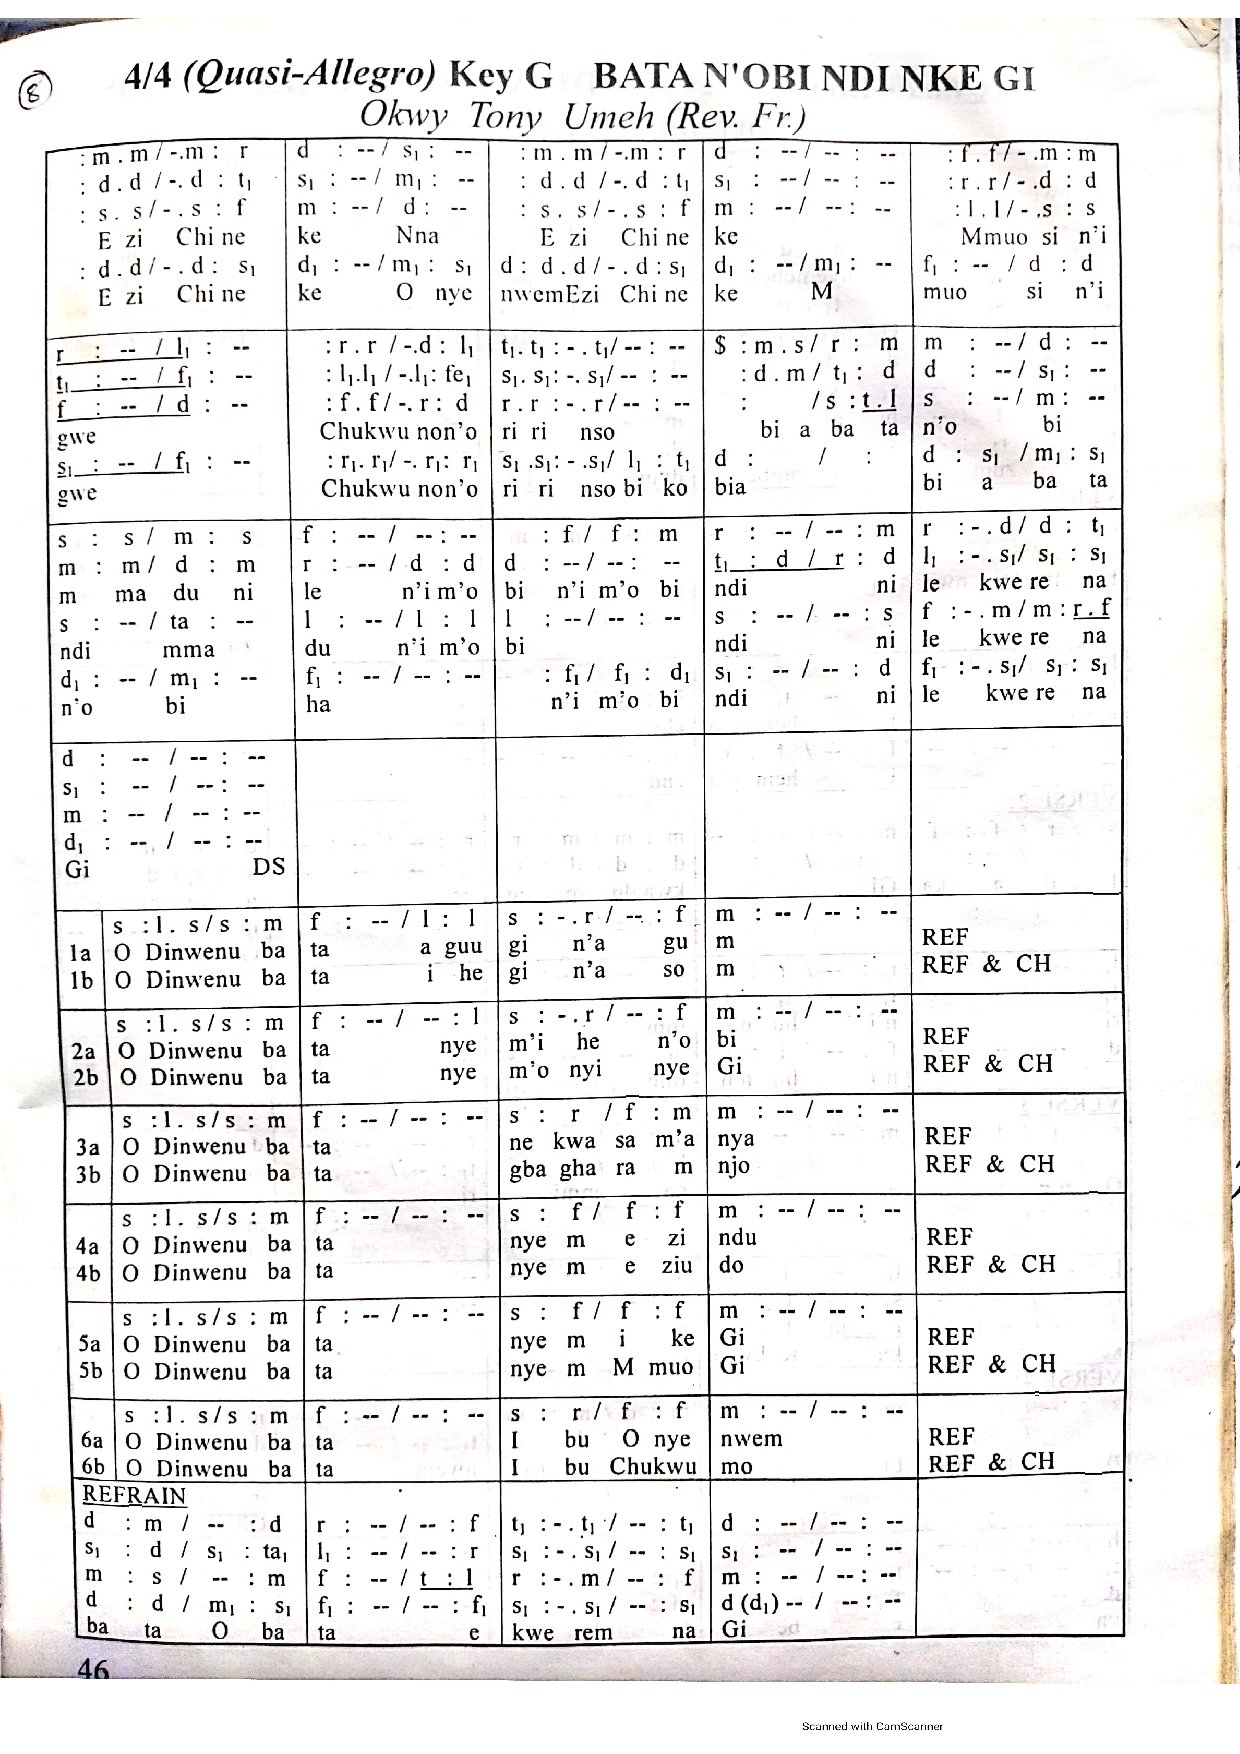 8
4/4 (Quasi-Allegro) Key G BATA N'OBI NDI NKE GI
Okwy Tony Umeh (Rev. Fr.)
: m . m / -.m : r
: d . d / -. d : t₁
: s . s / - . s : f
E zi Chi ne
: d . d / - . d : s₁
E zi Chi ne
d : -- / s₁ : --
s₁ : -- / m₁ : --
m : -- / d : --
ke Nna
d₁ : -- / m₁ : s₁
ke O nye
: m . m / -.m : r
: d . d / -. d : t₁
: s . s / - . s : f
E zi Chi ne
d : d . d / - . d : s₁
nwemEzi Chi ne
d : -- / -- : --
s₁ : -- / -- : --
m : -- / -- : --
ke
d₁ : -- / m₁ : --
ke M
: f . f / - .m : m
: r . r / - .d : d
: l . l / - .s : s
Mmuo si n'i
f₁ : -- / d : d
muo si n'i
r : -- / l₁ : --
t₁ : -- / f₁ : --
f : -- / d : --
gwe
s₁ : -- / f₁ : --
gwe
: r . r / -.d : l₁
: l₁.l₁ / -.l₁: fe₁
: f . f / -. r : d
Chukwu non'o
: r₁. r₁/ -. r₁: r₁
Chukwu non'o
t₁. t₁ : - . t₁/ -- : --
s₁. s₁: -. s₁/ -- : --
r . r : - . r / -- : --
ri ri nso
s₁ .s₁: - .s₁/ l₁ : t₁
ri ri nso bi ko
$ : m . s / r : m
: d . m / t₁ : d
: / s : t . l
bi a ba ta
d : / :
bia
m : -- / d : --
d : -- / s₁ : --
s : -- / m : --
n'o bi
d : s₁ / m₁ : s₁
bi a ba ta
s : s / m : s
m : m / d : m
m ma du ni
s : -- / ta : --
ndi mma
d₁ : -- / m₁ : --
n'o bi
f : -- / -- : --
r : -- / d : d
le n'i m'o
l : -- / l : l
du n'i m'o
f₁ : -- / -- : --
ha
: f / f : m
d : -- / -- : --
bi n'i m'o bi
l : -- / -- : --
bi
: f₁ / f₁ : d₁
n'i m'o bi
r : -- / -- : m
t₁ : d / r : d
ndi ni
s : -- / -- : s
ndi ni
s₁ : -- / -- : d
ndi ni
r : - . d / d : t₁
l₁ : - . s₁/ s₁ : s₁
le kwe re na
f : - . m / m : r . f
le kwe re na
f₁ : - . s₁/ s₁ : s₁
le kwe re na
d : -- / -- : --
s₁ : -- / -- : --
m : -- / -- : --
d₁ : -- / -- : --
Gi DS
s : l . s / s : m f : -- / l : l s : - . r / -- : f m : -- / -- : --
1a O Dinwenu ba ta a guu gi n'a gu m REF
1b O Dinwenu ba ta i he gi n'a so m REF & CH
s : l . s / s : m f : -- / -- : l s : - . r / -- : f m : -- / -- : --
2a O Dinwenu ba ta nye m'i he n'o bi REF
2b O Dinwenu ba ta nye m'o nyi nye Gi REF & CH
s : l . s / s : m f : -- / -- : -- s : r / f : m m : -- / -- : --
3a O Dinwenu ba ta ne kwa sa m'a nya REF
3b O Dinwenu ba ta gba gha ra m njo REF & CH
s : l . s / s : m f : -- / -- : -- s : f / f : f m : -- / -- : --
4a O Dinwenu ba ta nye m e zi ndu REF
4b O Dinwenu ba ta nye m e ziu do REF & CH
s : l . s / s : m f : -- / -- : -- s : f / f : f m : -- / -- : --
5a O Dinwenu ba ta nye m i ke Gi REF
5b O Dinwenu ba ta nye m M muo Gi REF & CH
s : l . s / s : m f : -- / -- : -- s : r / f : f m : -- / -- : --
6a O Dinwenu ba ta I bu O nye nwem REF
6b O Dinwenu ba ta I bu Chukwu mo REF & CH
REFRAIN
d : m / -- : d r : -- / -- : f t₁ : - . t₁ / -- : t₁ d : -- / -- : --
s₁ : d / s₁ : ta₁ l₁ : -- / -- : r s₁ : - . s₁ / -- : s₁ s₁ : -- / -- : --
m : s / -- : m f : -- / t : l r : - . m / -- : f m : -- / -- : --
d : d / m₁ : s₁ f₁ : -- / -- : f₁ s₁ : - . s₁ / -- : s₁ d (d₁) -- / -- : --
ba ta O ba ta e kwe rem na Gi
46
Scanned with CamScanner